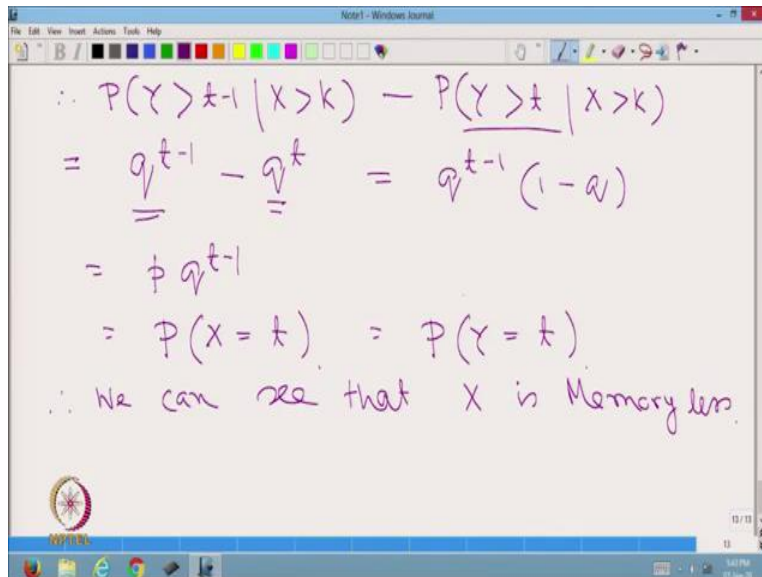 Note1 - Windows Journal
File Edit View Insert Actions Tools Help
∴ P(Y>t-1 | X>k) - P(Y>t | X>k)
= q^{t-1} - q^t = q^{t-1} (1-q)
= p q^{t-1}
= P(X = t) = P(Y = t)
∴ We can see that X is Memory less.
NPTEL
13 / 13
13